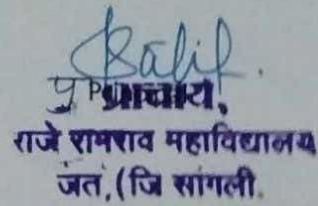 प्राचार्य,
राजे रामराव महाविद्यालय
जत, (जि सांगली.